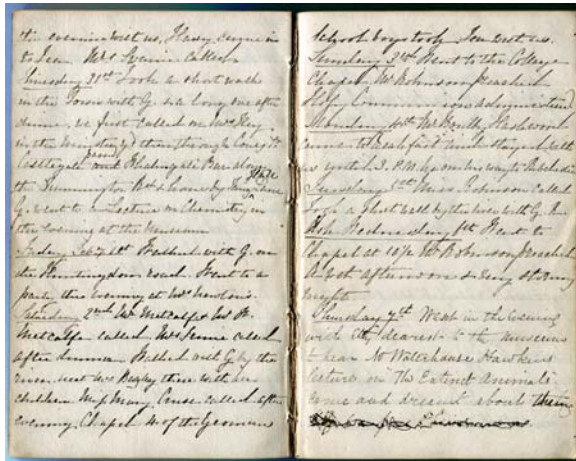 the evening with us. Harry came in
to Tea Mrs Evans called
Thursday 31st Took a short walk
in the Town with G. & a long one after
dinner, we first called on Mrs Hey
in the then through Coney St
Castlegate and Fishergate Bar along
the Road & home by
G. went to a Lecture on Chemistry in
the evening at the Museum
Friday Feby 1st Walked with G. on
the road. Went to a
party this evening at Mrs Newton's.
Saturday 2nd Mr Metcalfe Mr
Metcalfe called, Mrs called
after dinner Walked with G by the
river met Mrs there with her
children Miss Mary called after
evening Chapel 4 of the Yeoman
School boys took Tea with us.
Sunday 3rd Went to the College
Chapel Mr Robinson preached
Holy Communion administered
Monday 4th Mr
came to breakfast and stayed with
us until 3. P.M. he on his way to
Tuesday 5th Miss Robinson called
Took a short walk by the river with G.
Ash Wednesday 6th Went to
Chapel at 10½ Mr Robinson preached
A wet afternoon & very stormy
night.
Thursday 7th Went in the evening
with my dearest to the museum
to hear Mr Waterhouse Hawkins
lecture on The Extinct Animals
some and present about them